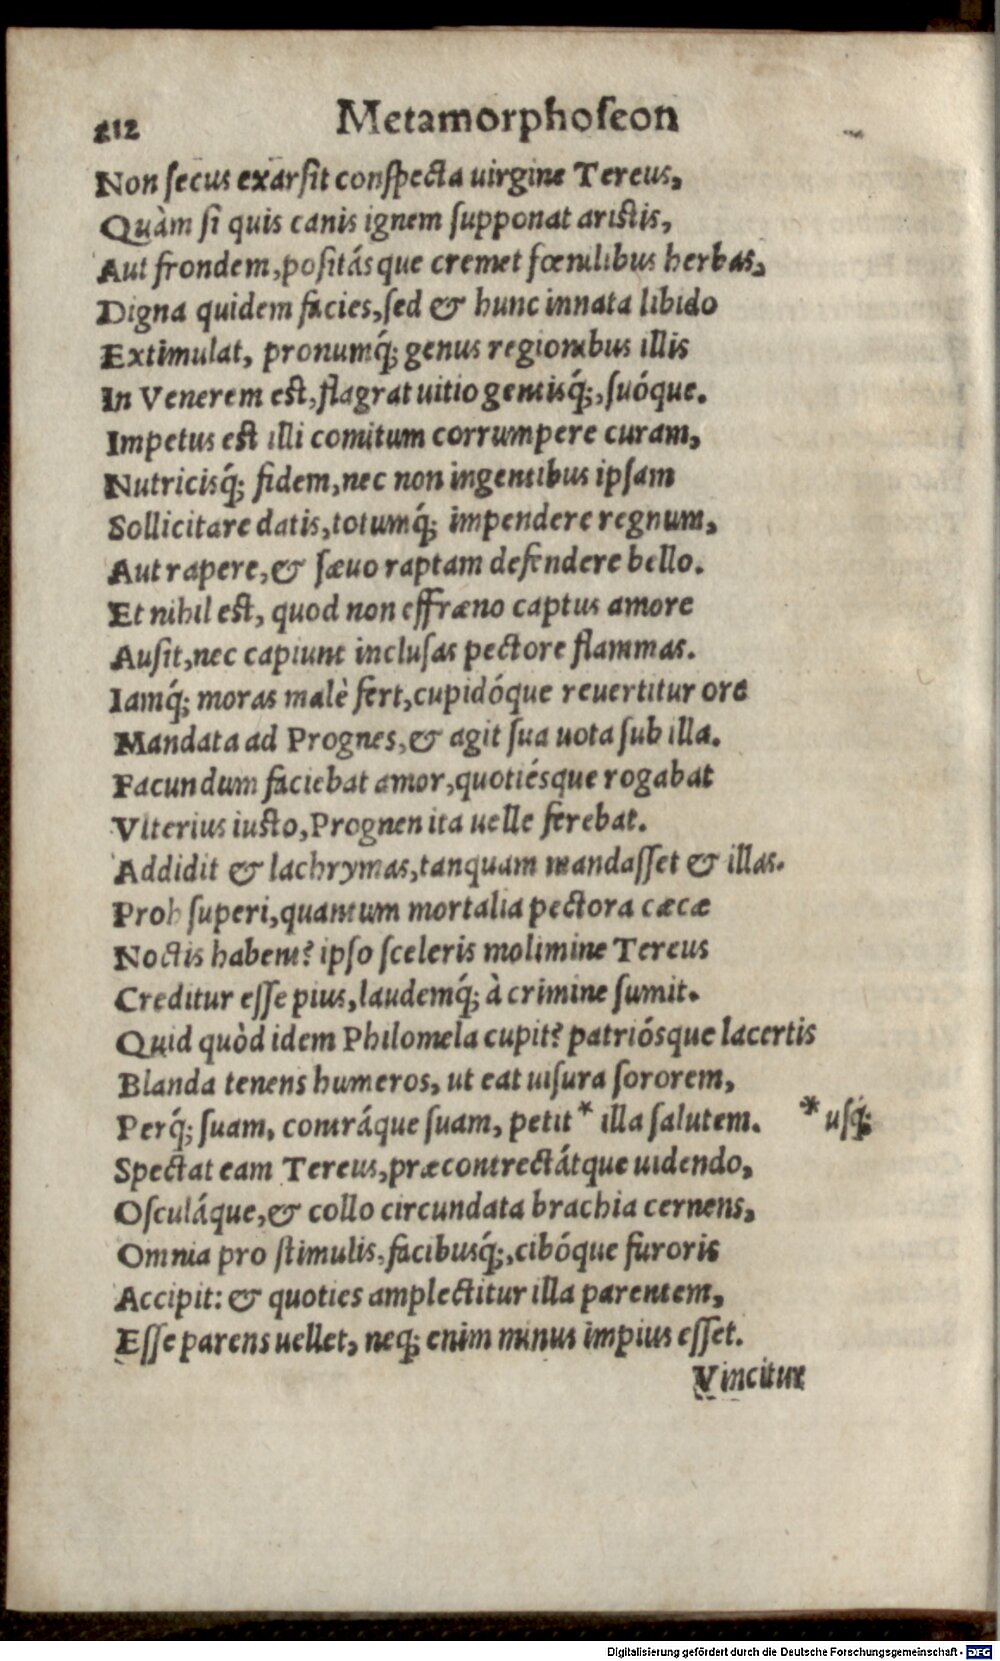 212 Metamorphoseon
Non ſecus exarſit conſpecta uirgine Tereus,
Quàm ſi quis canis ignem ſupponat ariſtis,
Aut frondem, poſitásque cremet fœnilibus herbas,
Digna quidem facies, ſed & hunc innata libido
Extimulat, pronumq́; genus regionibus illis
In Venerem eſt, flagrat uitio gentisq́;, ſuóque.
Impetus eſt illi comitum corrumpere curam,
Nutricisq́; fidem, nec non ingentibus ipſam
Sollicitare datis, totumq́; impendere regnum,
Aut rapere, & ſæuo raptam defendere bello.
Et nihil eſt, quod non effræno captus amore
Auſit, nec capiunt incluſas pectore flammas.
Iamq́; moras malè fert, cupidóque reuertitur ore
Mandata ad Prognes, & agit ſua uota ſub illa.
Facundum faciebat amor, quotiésque rogabat
Vlterius iuſto, Prognen ita uelle ferebat.
Addidit & lachrymas, tanquam mandaſſet & illas.
Proh ſuperi, quantum mortalia pectora cæcæ
Noctis habent? ipſo ſceleris molimine Tereus
Creditur eſſe pius, laudemq́; à crimine ſumit.
Quid quòd idem Philomela cupit? patriósque lacertis
Blanda tenens humeros, ut eat uiſura ſororem,
Perq́; ſuam, contráque ſuam, petit * illa ſalutem. * uſq;
Spectat eam Tereus, præcontrectátque uidendo,
Oſculáque, & collo circundata brachia cernens,
Omnia pro ſtimulis, facibusq́;, cibóque furoris
Accipit: & quoties amplectitur illa parentem,
Eſſe parens uellet, neq; enim minus impius eſſet.
Vincitur
Digitalisierung gefördert durch die Deutsche Forschungsgemeinschaft - DFG